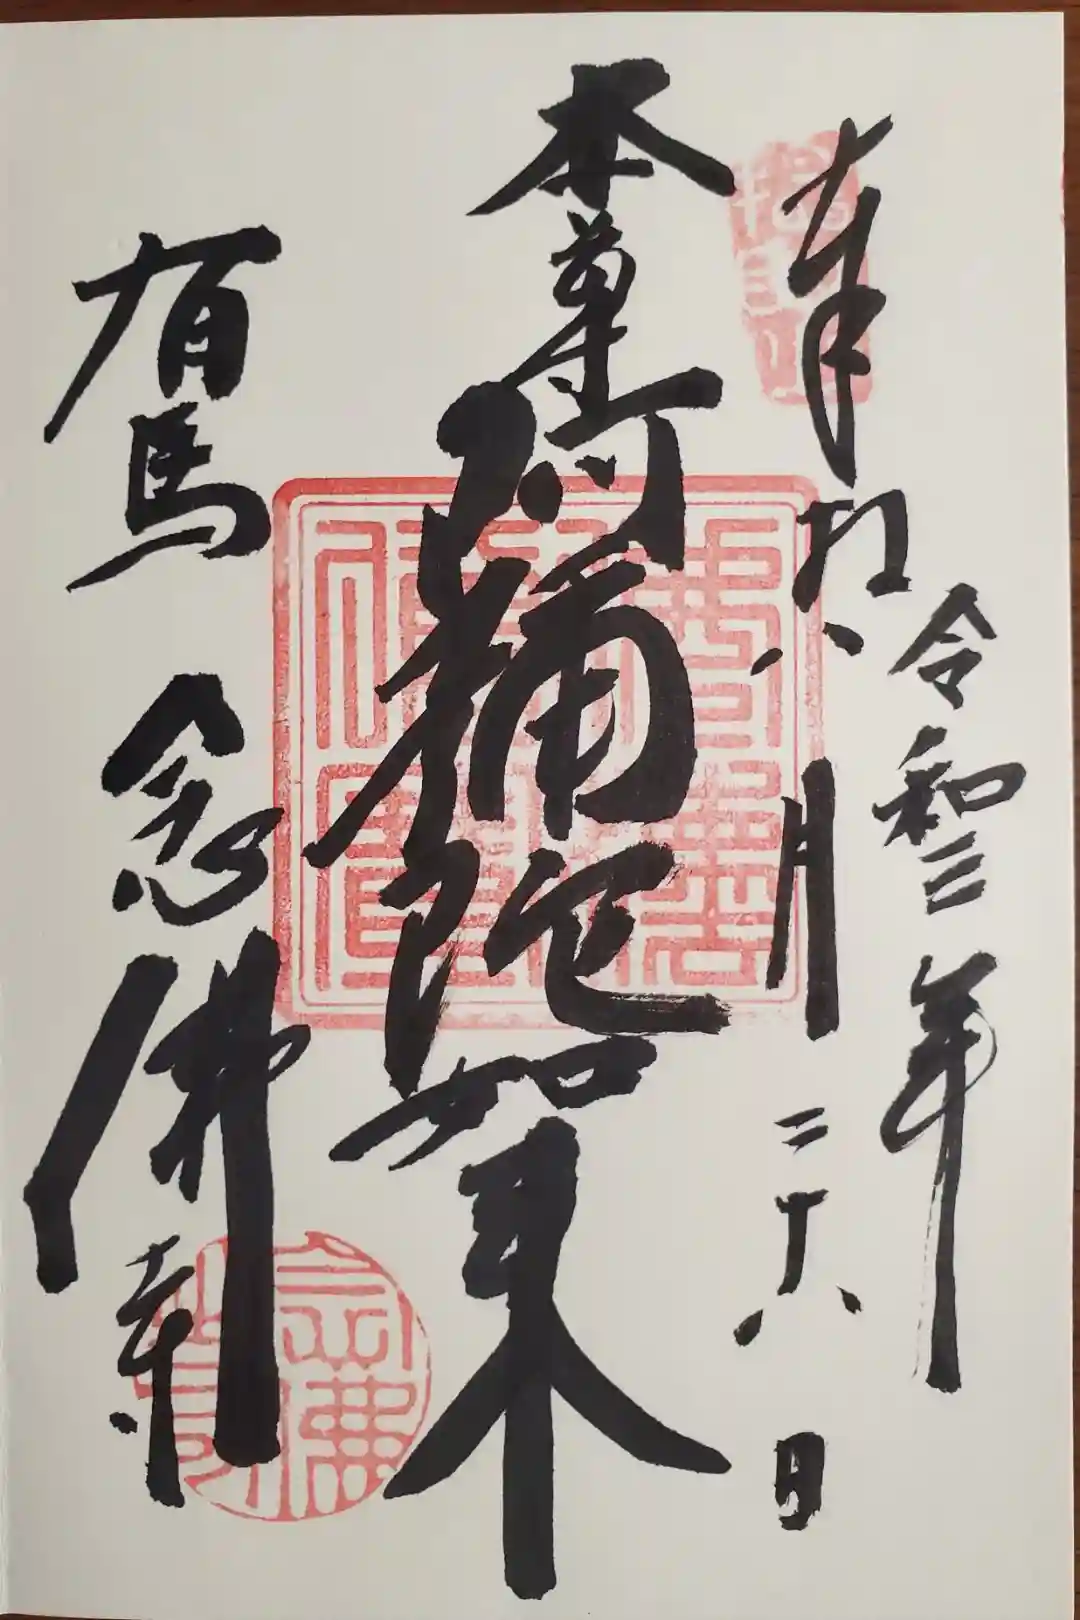 令和三年
奉拝八月二十八日
本尊阿彌陀如来
有馬念佛寺